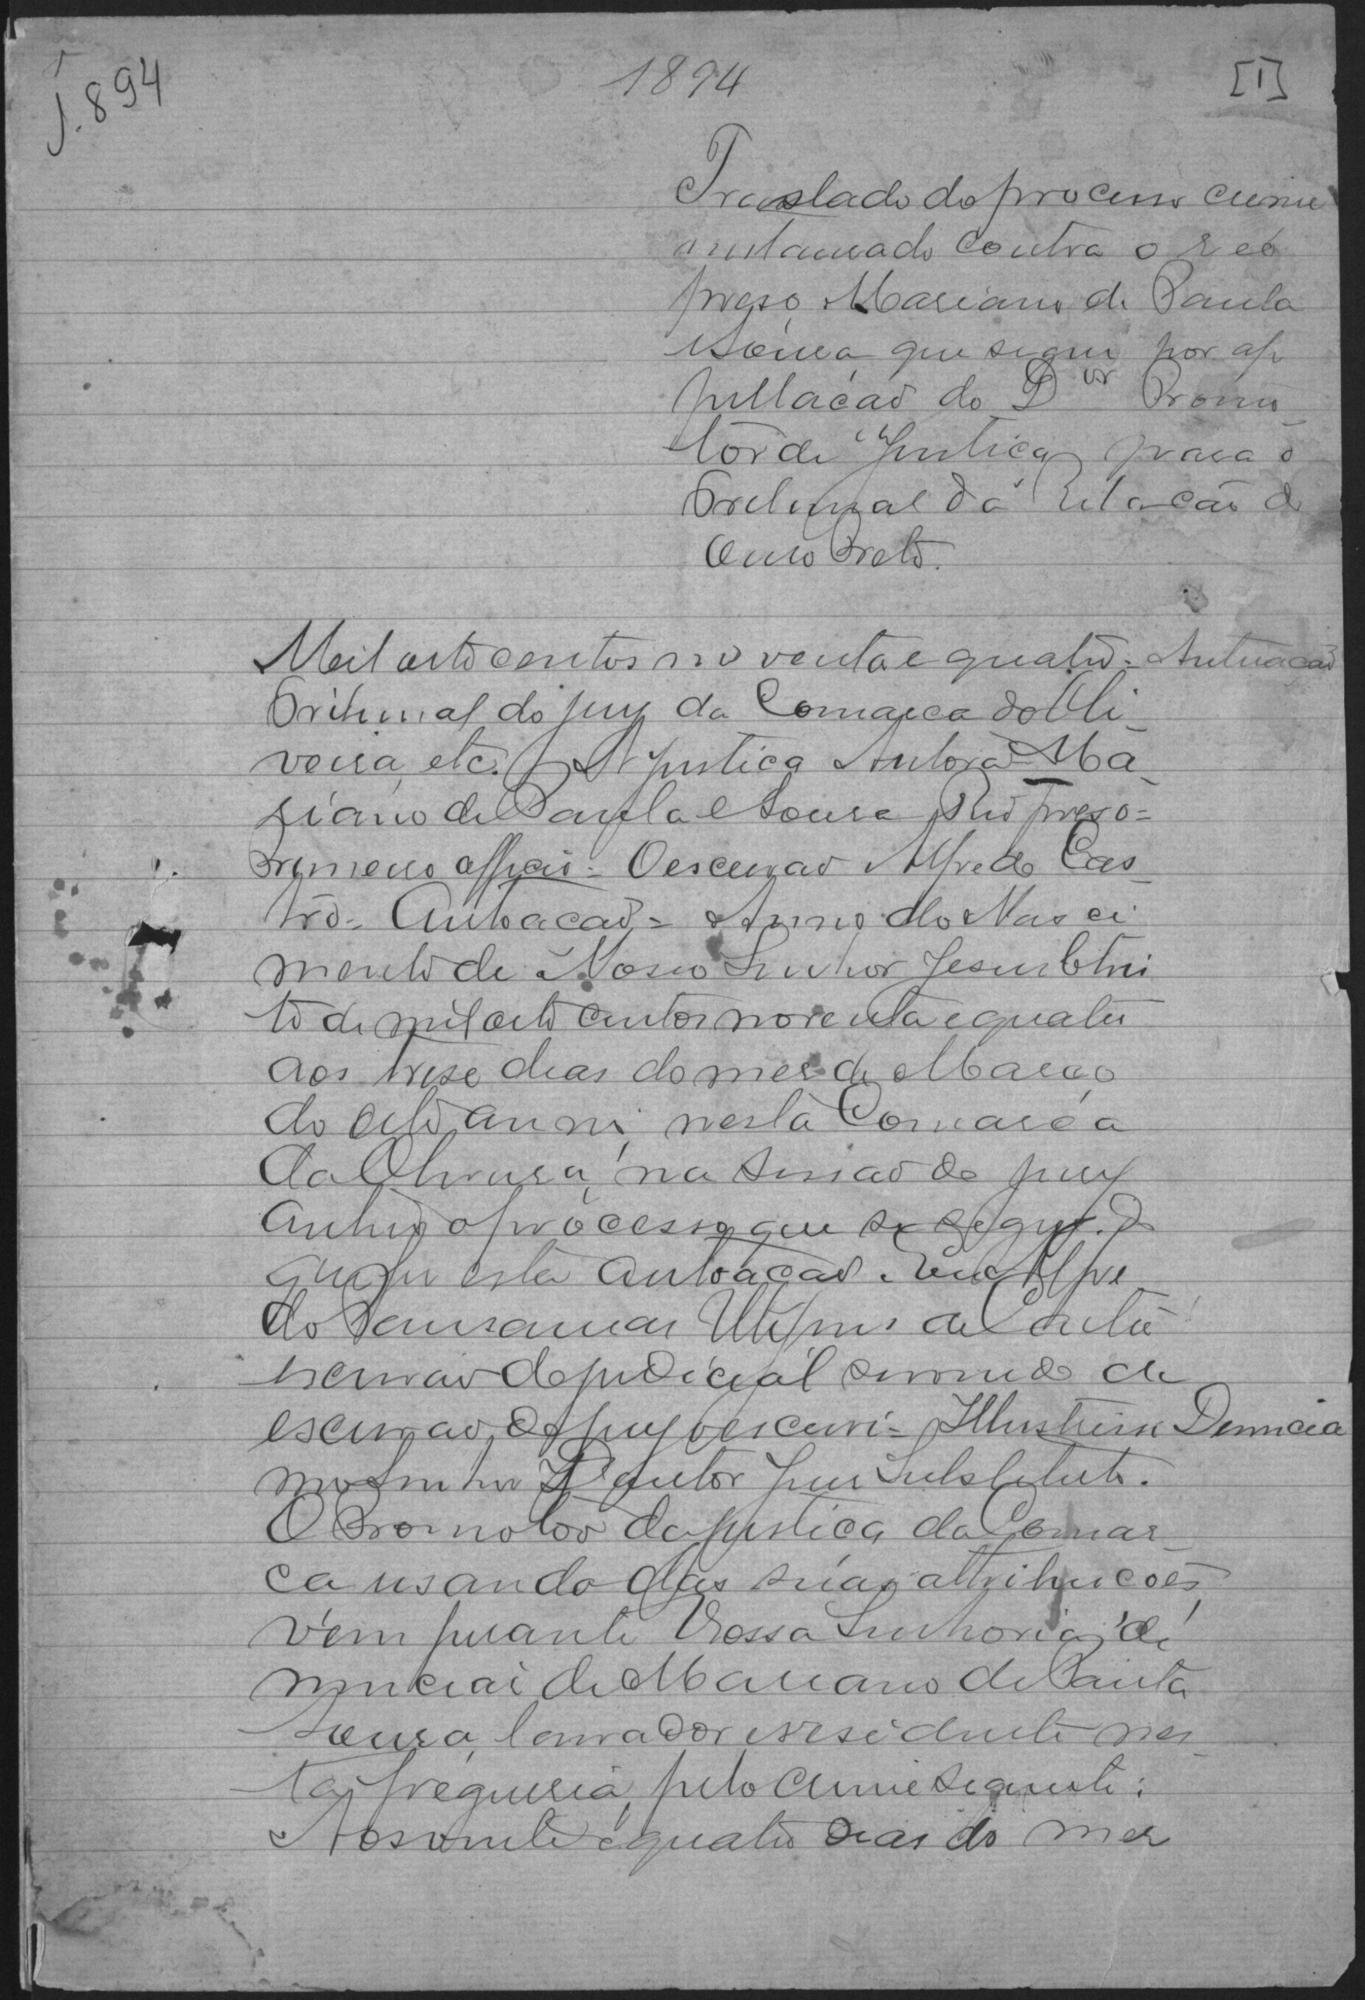 J. 894
1894
[1]
Traslado do processo crime
instaurado contra o reo
preso, Mariano de Paula
Sousa que segue por ap
pellação do Dor Promo
tor de Justiça, para o
Tribunal da Relação de
Ouro Preto.
Mil oito centos noventa e quatro - Autuação
Tribunal do jury da Comarca do Oli
veira, etc. A Justiça Autora - Ma
riano de Paula e Sousa Reo preso =
Primeiro officio = O escrivão Alfredo Cas
tro = Autoação = Anno do Nasci
mento de Nosso Senhor Jesus Chris
to de mil oito centos noventa e quatro
aos trese dias do mes de Março
do dito anno, nesta Comarca
da Oliveira, na sessão do jury
autuo o processo que se segue. Do
que fiz esta autoação. Eu Alfre
do de Castro
escrivão do judicial servindo de
escrivão do jury o escrevi = Illustrissi Denuncia
mo Senhor Doutor Juis Substituto.
O Promotor da Justiça da Comar
ca usando das suas attribuições,
vem perante Vossa Senhoria de
nunciar de Mariano de Paula
Sousa, lavrador e residente nes
ta freguesia, pelo crime seguinte:
Aos vinte e quatro dias do mes